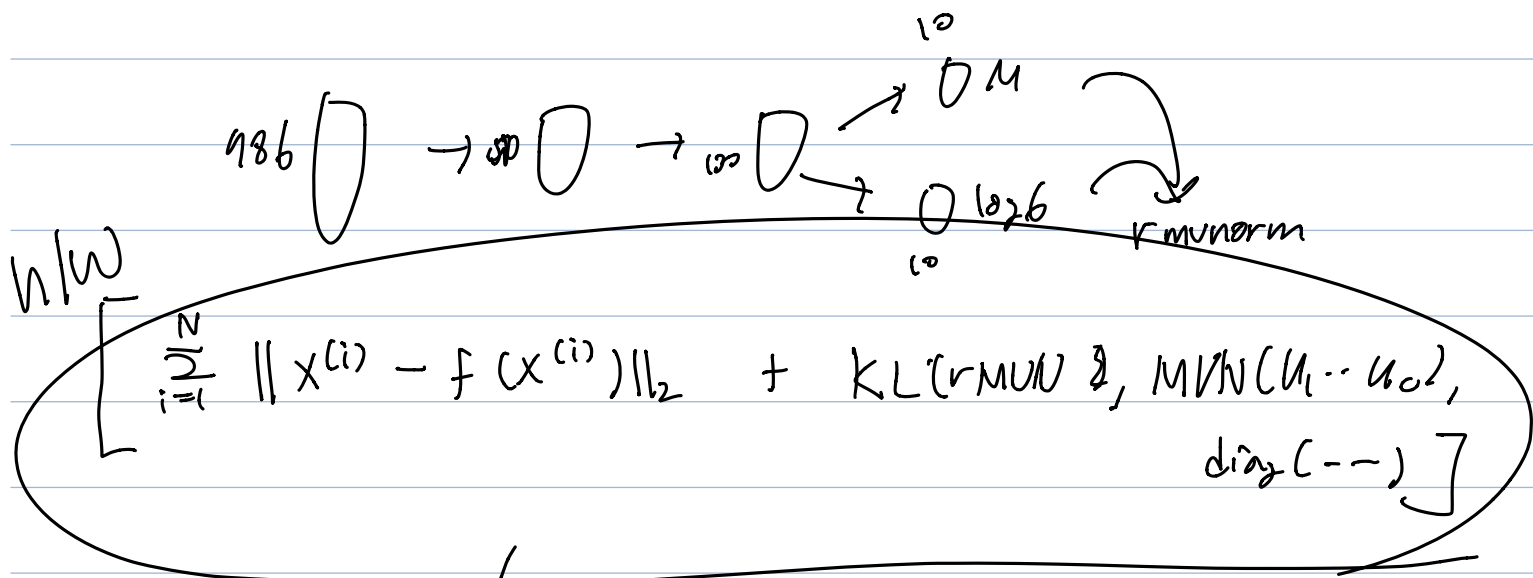 10
μ
986 → → 100
log σ
10
rmvnorm
h/w
[ \sum_{i=1}^{N} || x^{(i)} - f(x^{(i)}) ||_2 + KL(rMVN , MVN(μ_1 ·· μ_{10}),
diag(---) ]